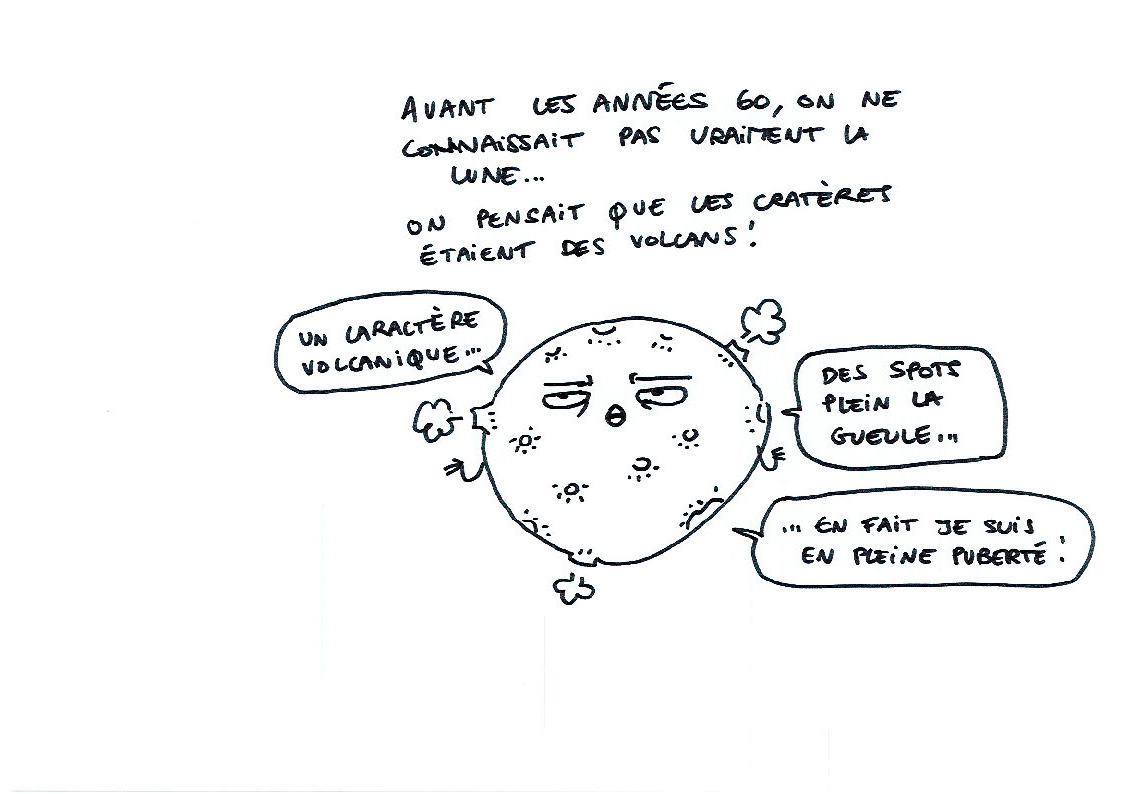 AVANT LES ANNÉES 60, ON NE
CONNAISSAIT PAS VRAIMENT LA
LUNE...
ON PENSAIT QUE LES CRATÈRES
ÉTAIENT DES VOLCANS !
UN CARACTÈRE
VOLCANIQUE...
DES SPOTS
PLEIN LA
GUEULE...
... EN FAIT JE SUIS
EN PLEINE PUBERTÉ !